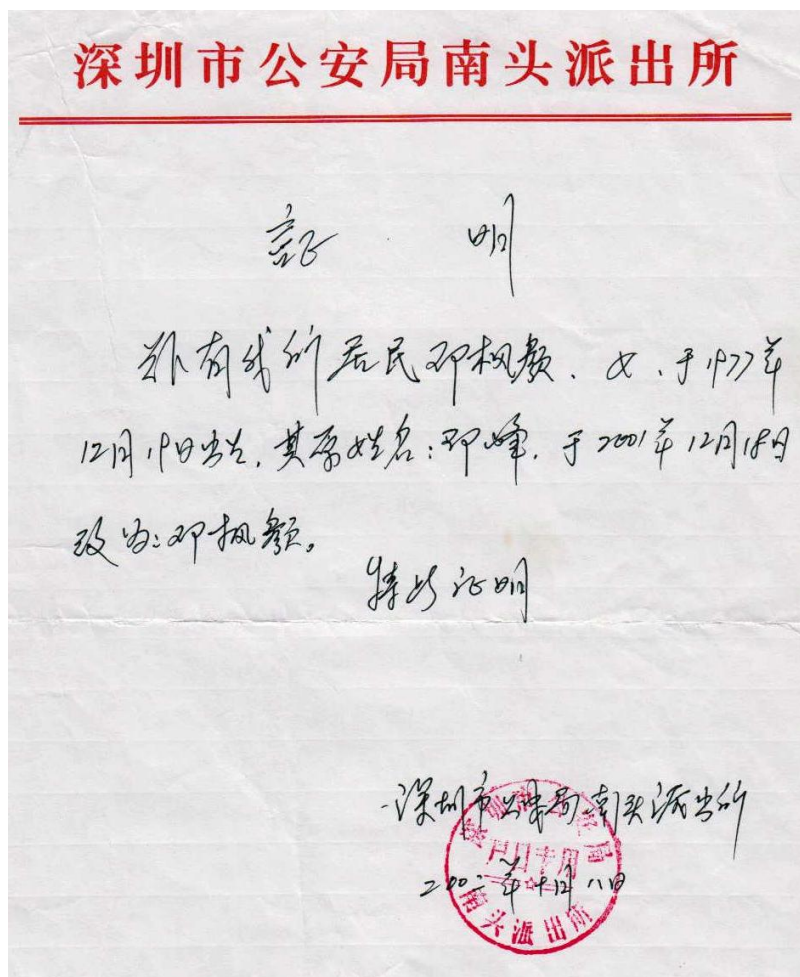 深圳市公安局南头派出所
证 明
兹有我所居民邓枫颜、女、于1977年
12月19日出生,其原姓名:邓峰,于2001年12月18日
改为:邓枫颜。
特此证明
深圳市公安局南头派出所
二00二年十月八日
深圳市公安局
户口专用
南头派出所